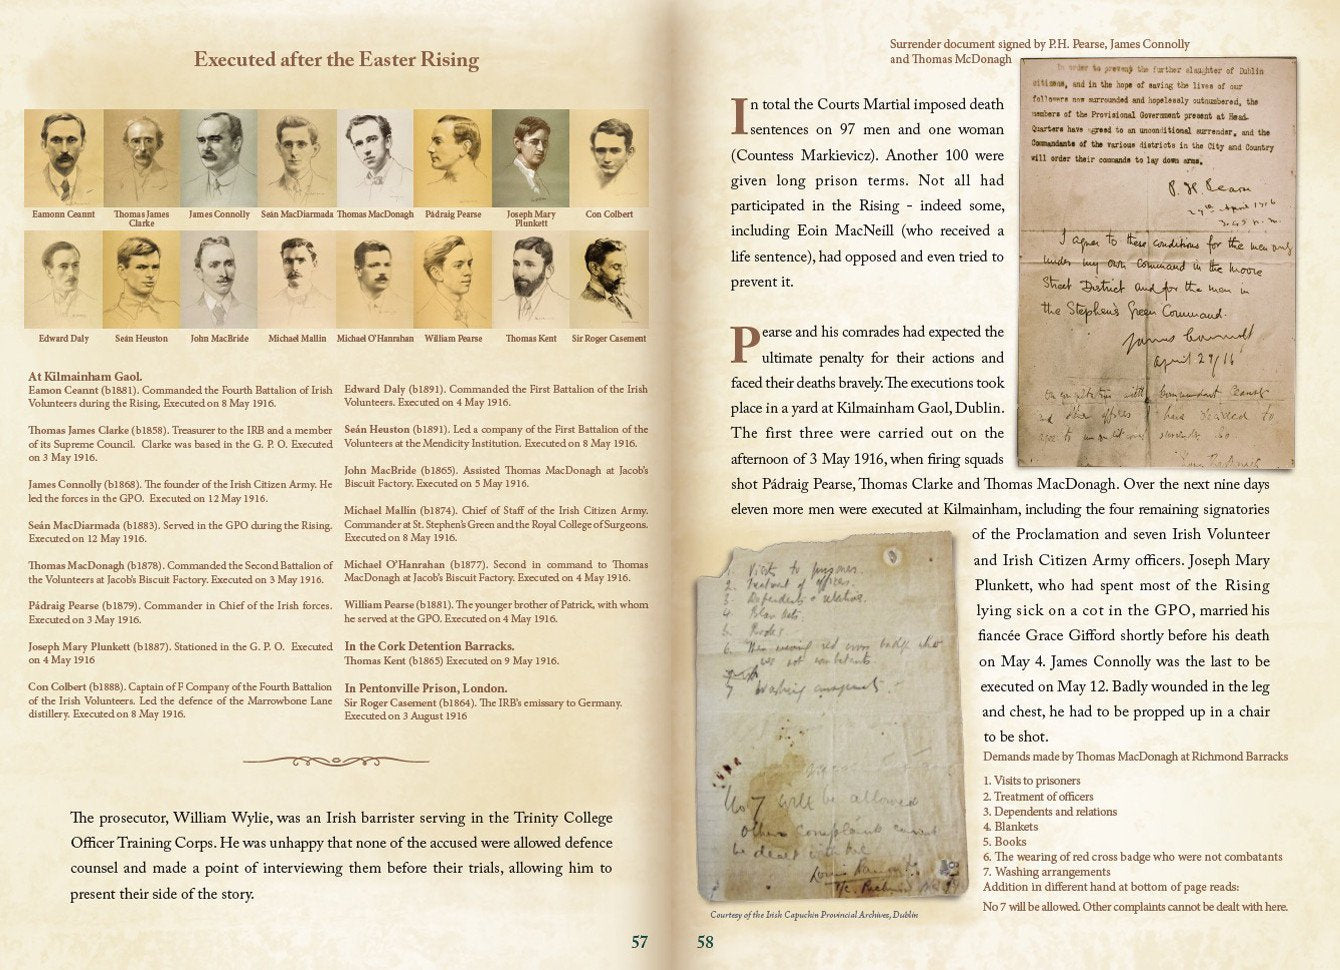 Executed after the Easter Rising
Eamonn Ceannt
Thomas James
Clarke
James Connolly
Seán MacDiarmada
Thomas MacDonagh
Pádraig Pearse
Joseph Mary
Plunkett
Con Colbert
Edward Daly
Seán Heuston
John MacBride
Michael Mallin
Michael O'Hanrahan
William Pearse
Thomas Kent
Sir Roger Casement
At Kilmainham Gaol.
Eamon Ceannt (b1881). Commanded the Fourth Battalion of Irish
Volunteers during the Rising, Executed on 8 May 1916.
Thomas James Clarke (b1858). Treasurer to the IRB and a member
of its Supreme Council. Clarke was based in the G. P. O. Executed
on 3 May 1916.
James Connolly (b1868). The founder of the Irish Citizen Army. He
led the forces in the GPO. Executed on 12 May 1916.
Seán MacDiarmada (b1883). Served in the GPO during the Rising.
Executed on 12 May 1916.
Thomas MacDonagh (b1878). Commanded the Second Battalion of
the Volunteers at Jacob's Biscuit Factory. Executed on 3 May 1916.
Pádraig Pearse (b1879). Commander in Chief of the Irish forces.
Executed on 3 May 1916.
Joseph Mary Plunkett (b1887). Stationed in the G. P. O. Executed
on 4 May 1916
Con Colbert (b1888). Captain of F Company of the Fourth Battalion
of the Irish Volunteers. Led the defence of the Marrowbone Lane
distillery. Executed on 8 May 1916.
Edward Daly (b1891). Commanded the First Battalion of the Irish
Volunteers. Executed on 4 May 1916.
Seán Heuston (b1891). Led a company of the First Battalion of the
Volunteers at the Mendicity Institution. Executed on 8 May 1916.
John MacBride (b1865). Assisted Thomas MacDonagh at Jacob's
Biscuit Factory. Executed on 5 May 1916.
Michael Mallin (b1874). Chief of Staff of the Irish Citizen Army.
Commander at St. Stephen's Green and the Royal College of Surgeons.
Executed on 8 May 1916.
Michael O'Hanrahan (b1877). Second in command to Thomas
MacDonagh at Jacob's Biscuit Factory. Executed on 4 May 1916.
William Pearse (b1881). The younger brother of Patrick, with whom
he served at the GPO. Executed on 4 May 1916.
In the Cork Detention Barracks.
Thomas Kent (b1865) Executed on 9 May 1916.
In Pentonville Prison, London.
Sir Roger Casement (b1864). The IRB's emissary to Germany.
Executed on 3 August 1916
The prosecutor, William Wylie, was an Irish barrister serving in the Trinity College
Officer Training Corps. He was unhappy that none of the accused were allowed defence
counsel and made a point of interviewing them before their trials, allowing him to
present their side of the story.
57
Surrender document signed by P.H. Pearse, James Connolly
and Thomas McDonagh
In order to prevent the further slaughter of Dublin
citizens, and in the hope of saving the lives of our
followers now surrounded and hopelessly outnumbered, the
members of the Provisional Government present at Head-
Quarters have agreed to an unconditional surrender, and the
Commandants of the various districts in the City and Country
will order their commands to lay down arms.
P. H. Pearse
29th April 1916
3.45 p.m.
I agree to these conditions for the men only
under my own command in the Moore
Street District and for the men in
the Stephen's Green Command.
James Connolly
April 29/16
In total the Courts Martial imposed death
sentences on 97 men and one woman
(Countess Markievicz). Another 100 were
given long prison terms. Not all had
participated in the Rising - indeed some,
including Eoin MacNeill (who received a
life sentence), had opposed and even tried to
prevent it.
Pearse and his comrades had expected the
ultimate penalty for their actions and
faced their deaths bravely. The executions took
place in a yard at Kilmainham Gaol, Dublin.
The first three were carried out on the
afternoon of 3 May 1916, when firing squads
shot Pádraig Pearse, Thomas Clarke and Thomas MacDonagh. Over the next nine days
eleven more men were executed at Kilmainham, including the four remaining signatories
of the Proclamation and seven Irish Volunteer
and Irish Citizen Army officers. Joseph Mary
Plunkett, who had spent most of the Rising
lying sick on a cot in the GPO, married his
fiancée Grace Gifford shortly before his death
on May 4. James Connolly was the last to be
executed on May 12. Badly wounded in the leg
and chest, he had to be propped up in a chair
to be shot.
1. Visits to prisoners.
2. Treatment of officers.
3. Dependents & relatives.
4. Blankets.
5. Books.
6. The wearing red cross badge who
were not combatants.
7 Washing arrangements.
No 7 will be allowed
Other complaints cannot
be dealt with here
Courtesy of the Irish Capuchin Provincial Archives, Dublin
Demands made by Thomas MacDonagh at Richmond Barracks
1. Visits to prisoners
2. Treatment of officers
3. Dependents and relations
4. Blankets
5. Books
6. The wearing of red cross badge who were not combatants
7. Washing arrangements
Addition in different hand at bottom of page reads:
No 7 will be allowed. Other complaints cannot be dealt with here.
58